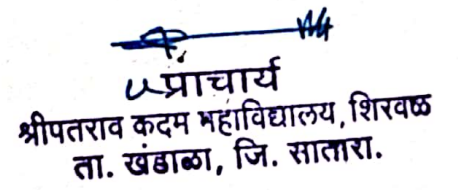 प्राचार्य
श्रीपतराव कदम महाविद्यालय, शिरवळ
ता. खंडाळा, जि. सातारा.